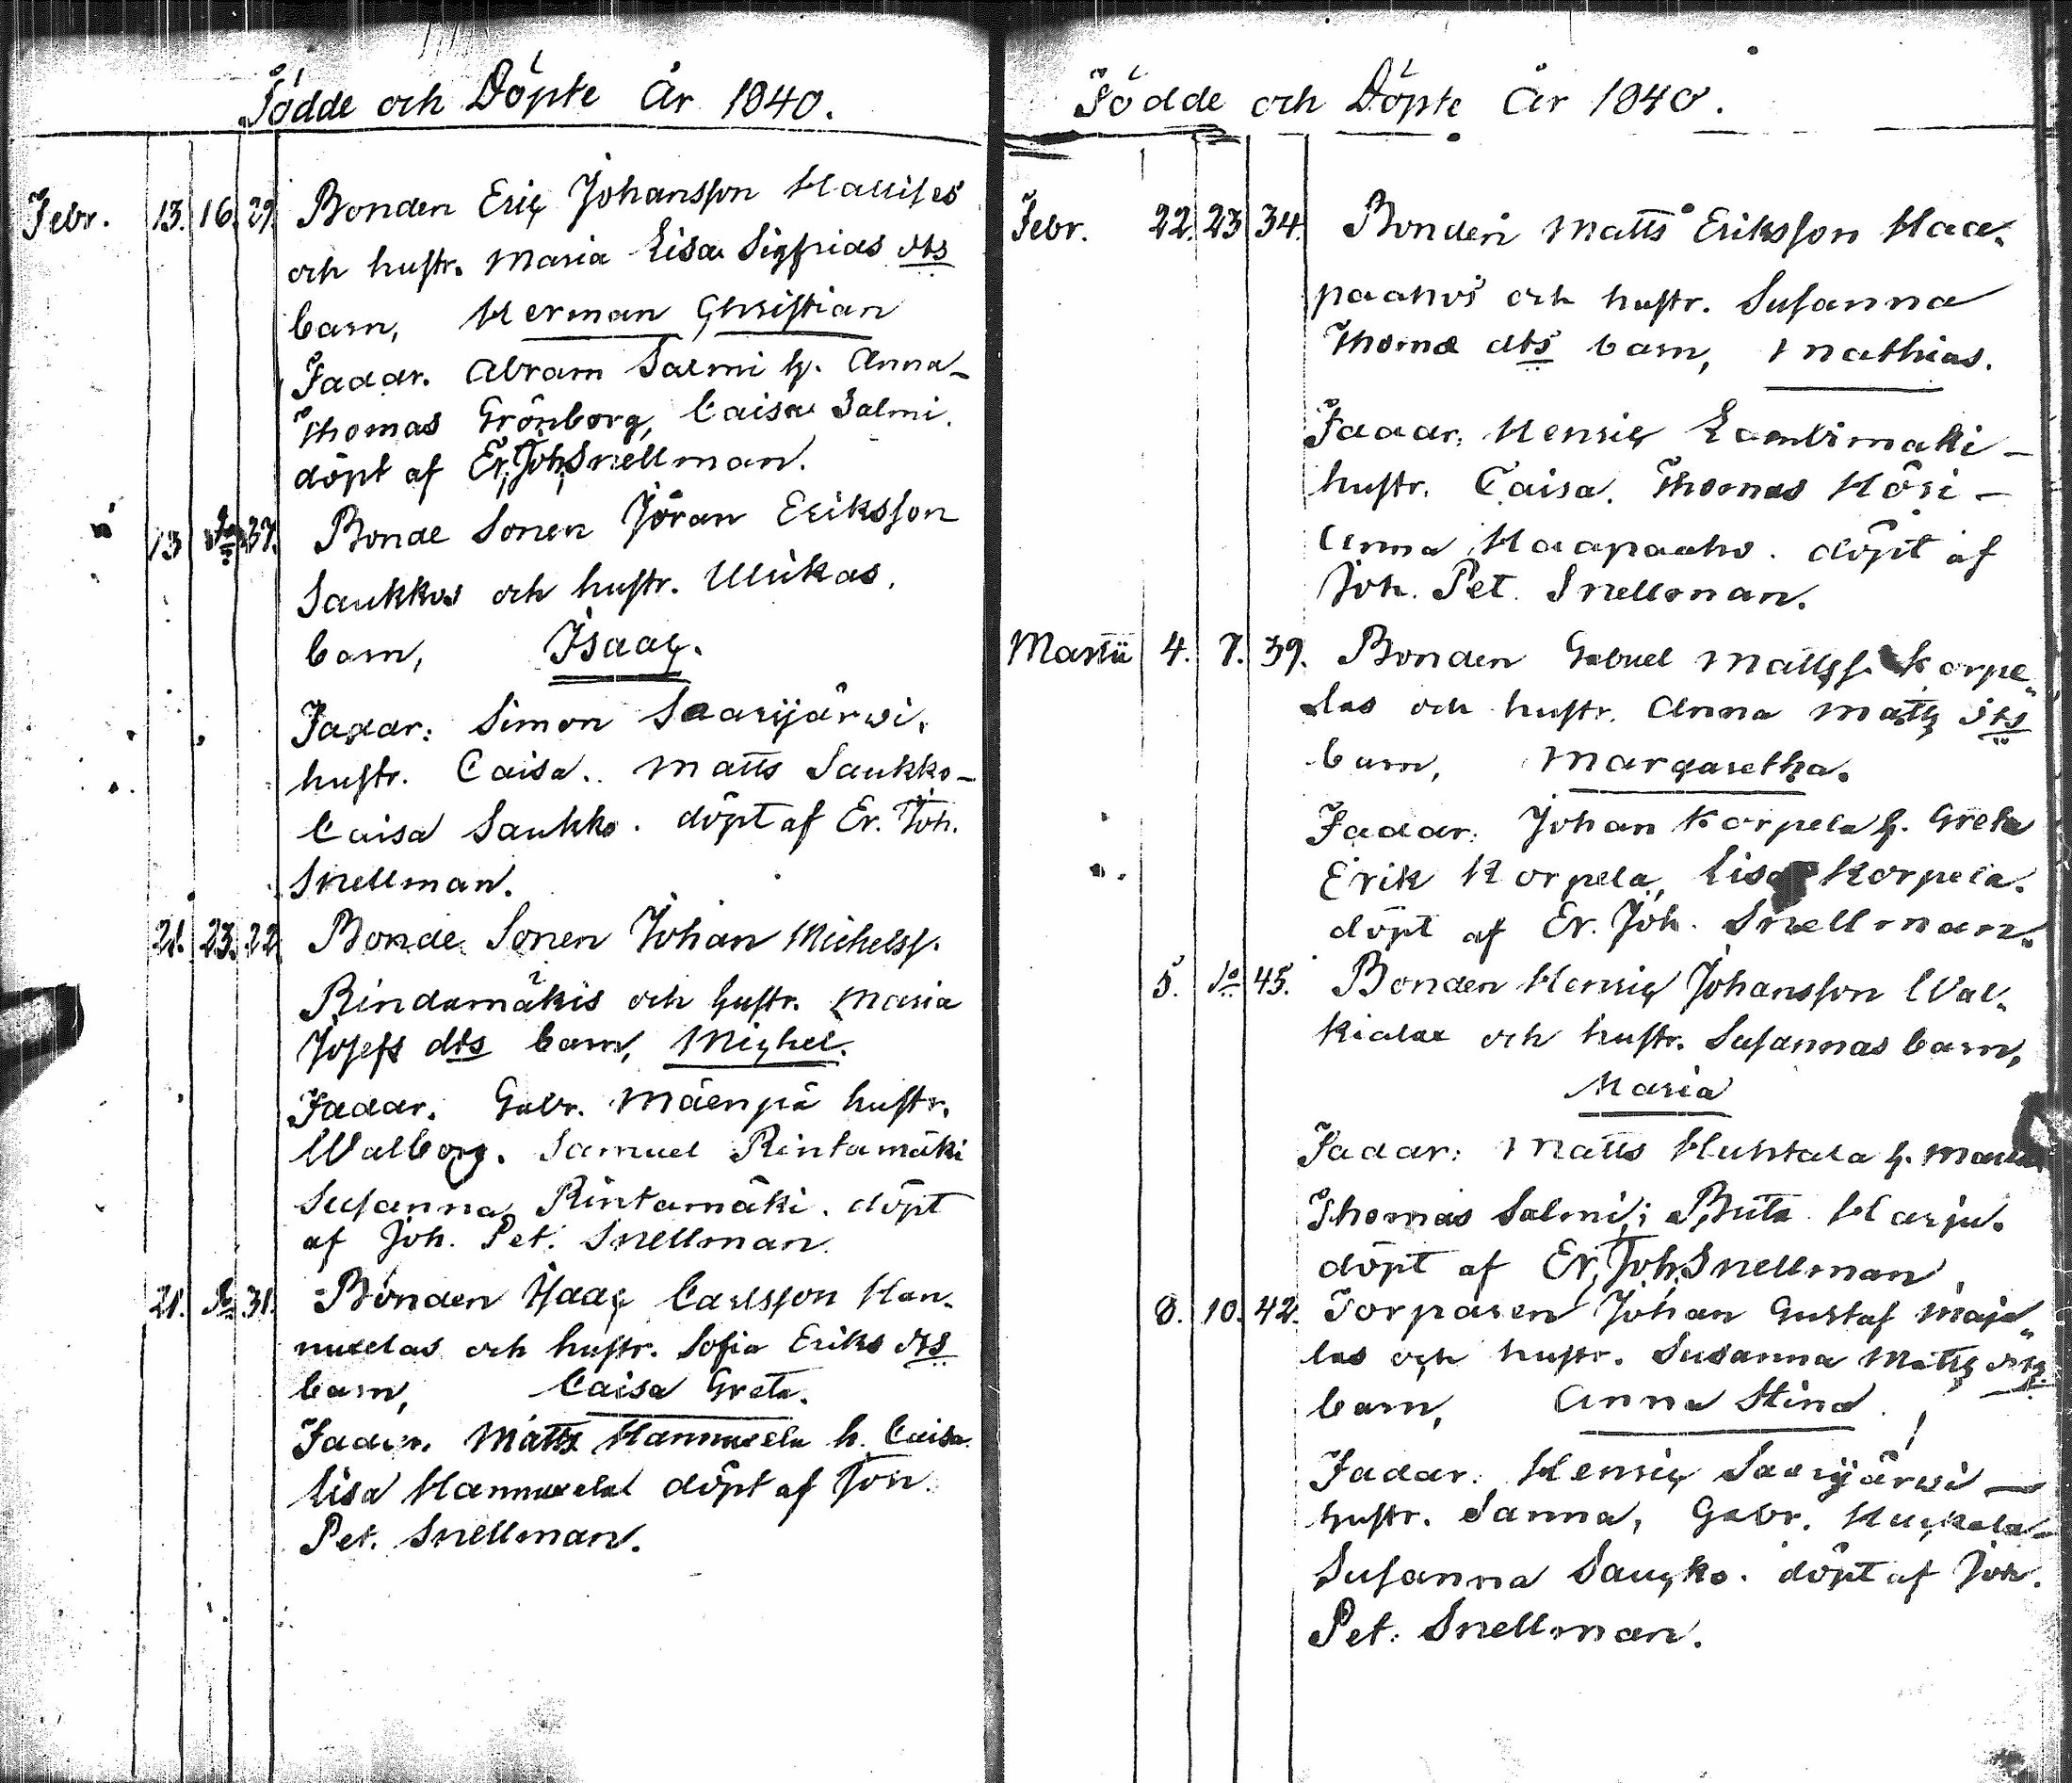 Födde och Döpte År 1840.
Febr. 13. 16. 29. Bonden Eric Johansson
och hustr. Maria Lisa Sigfrids dts
barn, Herman Christian
Faddr. Abram Salmi h. Anna -
Thomas Grönborg, Caisa Salmi.
döpt af Er. Joh. Snellman.
13 do 37. Bonde Sonen Jöran Eriksson
Saukkos och hustr. Ulrikas.
barn, Isaac.
Faddr: Simon Saarijärwi.
hustr. Caisa.. Matts Saukko -
Caisa Saukko. döpt af Er. Joh.
Snellman.
21. 23. 22. Bonde Sonen Johan Michelss.
Rindamäkis och hustr. Maria
Josefs dts barn, Michel.
Faddr. Gabr. Mäenpä hustr.
Walborg. Samuel Rintamäki
Susanna Rintamäki. döpt
af Joh. Pet. Snellman.
21. do 31. Bonden Isaac Carlsson Han-
nuxelas och hustr. Sofia Eriks dts
barn, Caisa Greta.
Faddr. Matts Hannuxela h. Caisa
Lisa Hannuxela döpt af Joh.
Pet. Snellman.
Födde och Döpte År 1840.
Febr. 22. 23 34. Bonden Matts Eriksson Haa-
paahos och hustr. Susanna
Thomæ dts barn, Mathias.
Faddr: Henric Lambimäki -
hustr. Caisa. Thomas -
Anna Haapaaho. döpt af
Joh. Pet. Snellman.
Martii 4. 7. 39. Bonden Gabriel Mattss. Korpe-
las och hustr. Anna Matts dts
barn, Margaretha.
Faddr: Johan Korpela h. Greta
Erik Korpela, Lisa Korpela.
döpt af Er. Joh. Snellman.
5. do 45. Bonden Henric Johansson Wal-
kiala och hustr. Susannas barn,
Maria
Faddr: Matts Huhtala h. Maria
Thomas Salmi; Brita Harju.
döpt af Er. Joh. Snellman.
8. 10. 42. Torparen Johan Gustaf Maja-
las och hustr. Susanna Matts dts
barn, Anna Stina.
Faddr: Henric Saarijärwi -
hustr. Sanna, Gabr.
Susanna Saucko. döpt af Joh.
Pet. Snellman.